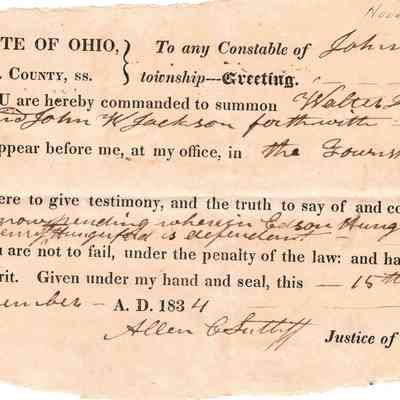 TE OF OHIO,
COUNTY, ss.
To any Constable of John
township—Greeting.
U are hereby commanded to summon Walter
John W Jackson forthwith
ppear before me, at my office, in the Towns
ere to give testimony, and the truth to say of and co
now pending wherein Edson Hung
Henry Hungerford is defendant.
u are not to fail, under the penalty of the law: and ha
rit. Given under my hand and seal, this 15th
ember A. D. 1834
Allen C Sutliff
Justice of